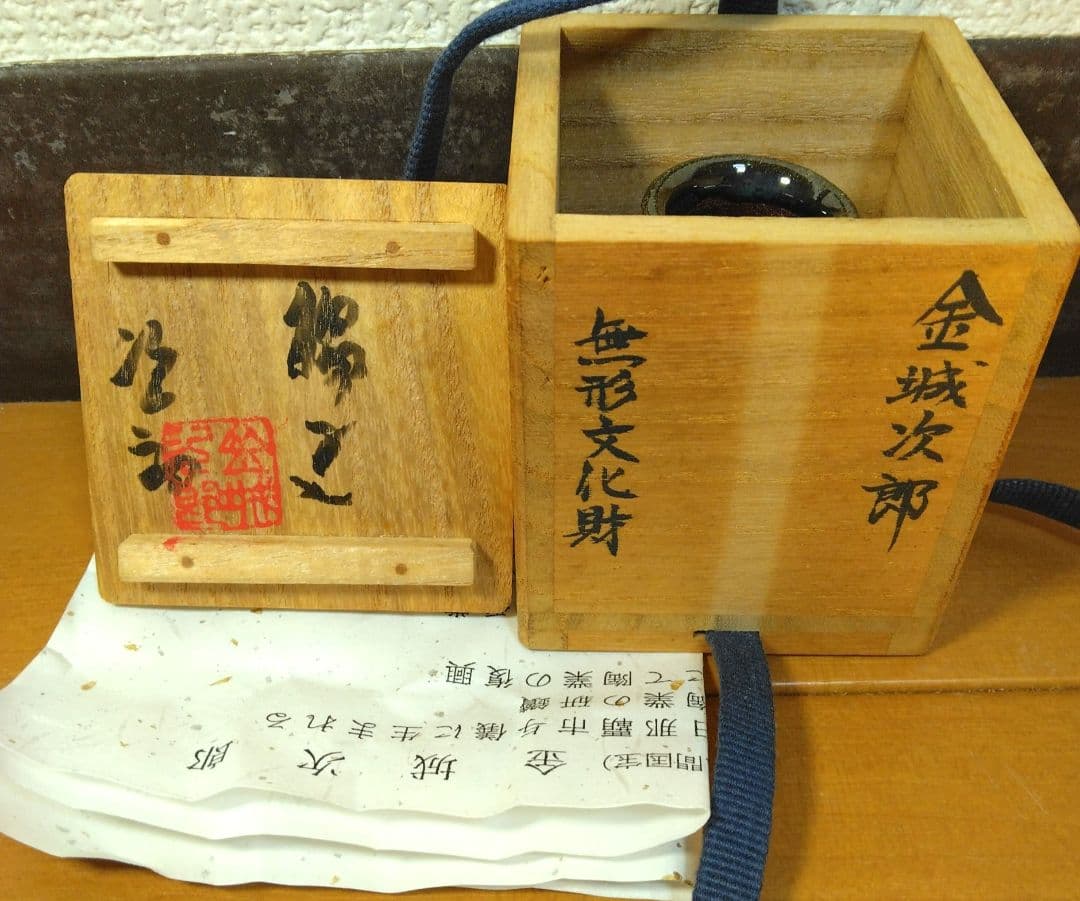 金城次郎
無形文化財
次郎
間国宝) 金城次郎
日那覇市与儀に生まれる
陶業の研鑽
て陶業の復興